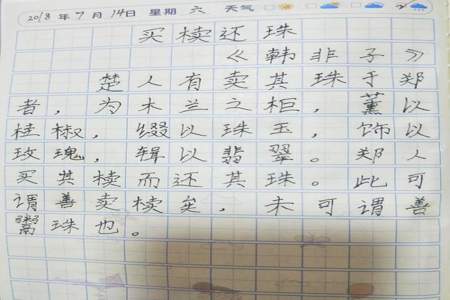 2018年7月14日 星期六 天气
买椟还珠
《韩非子》
楚人有卖其珠于郑
者，为木兰之柜，薰以
桂椒，缀以珠玉，饰以
玫瑰，辑以翡翠。郑人
买其椟而还其珠。此可
谓善卖椟矣，未可谓善
鬻珠也。